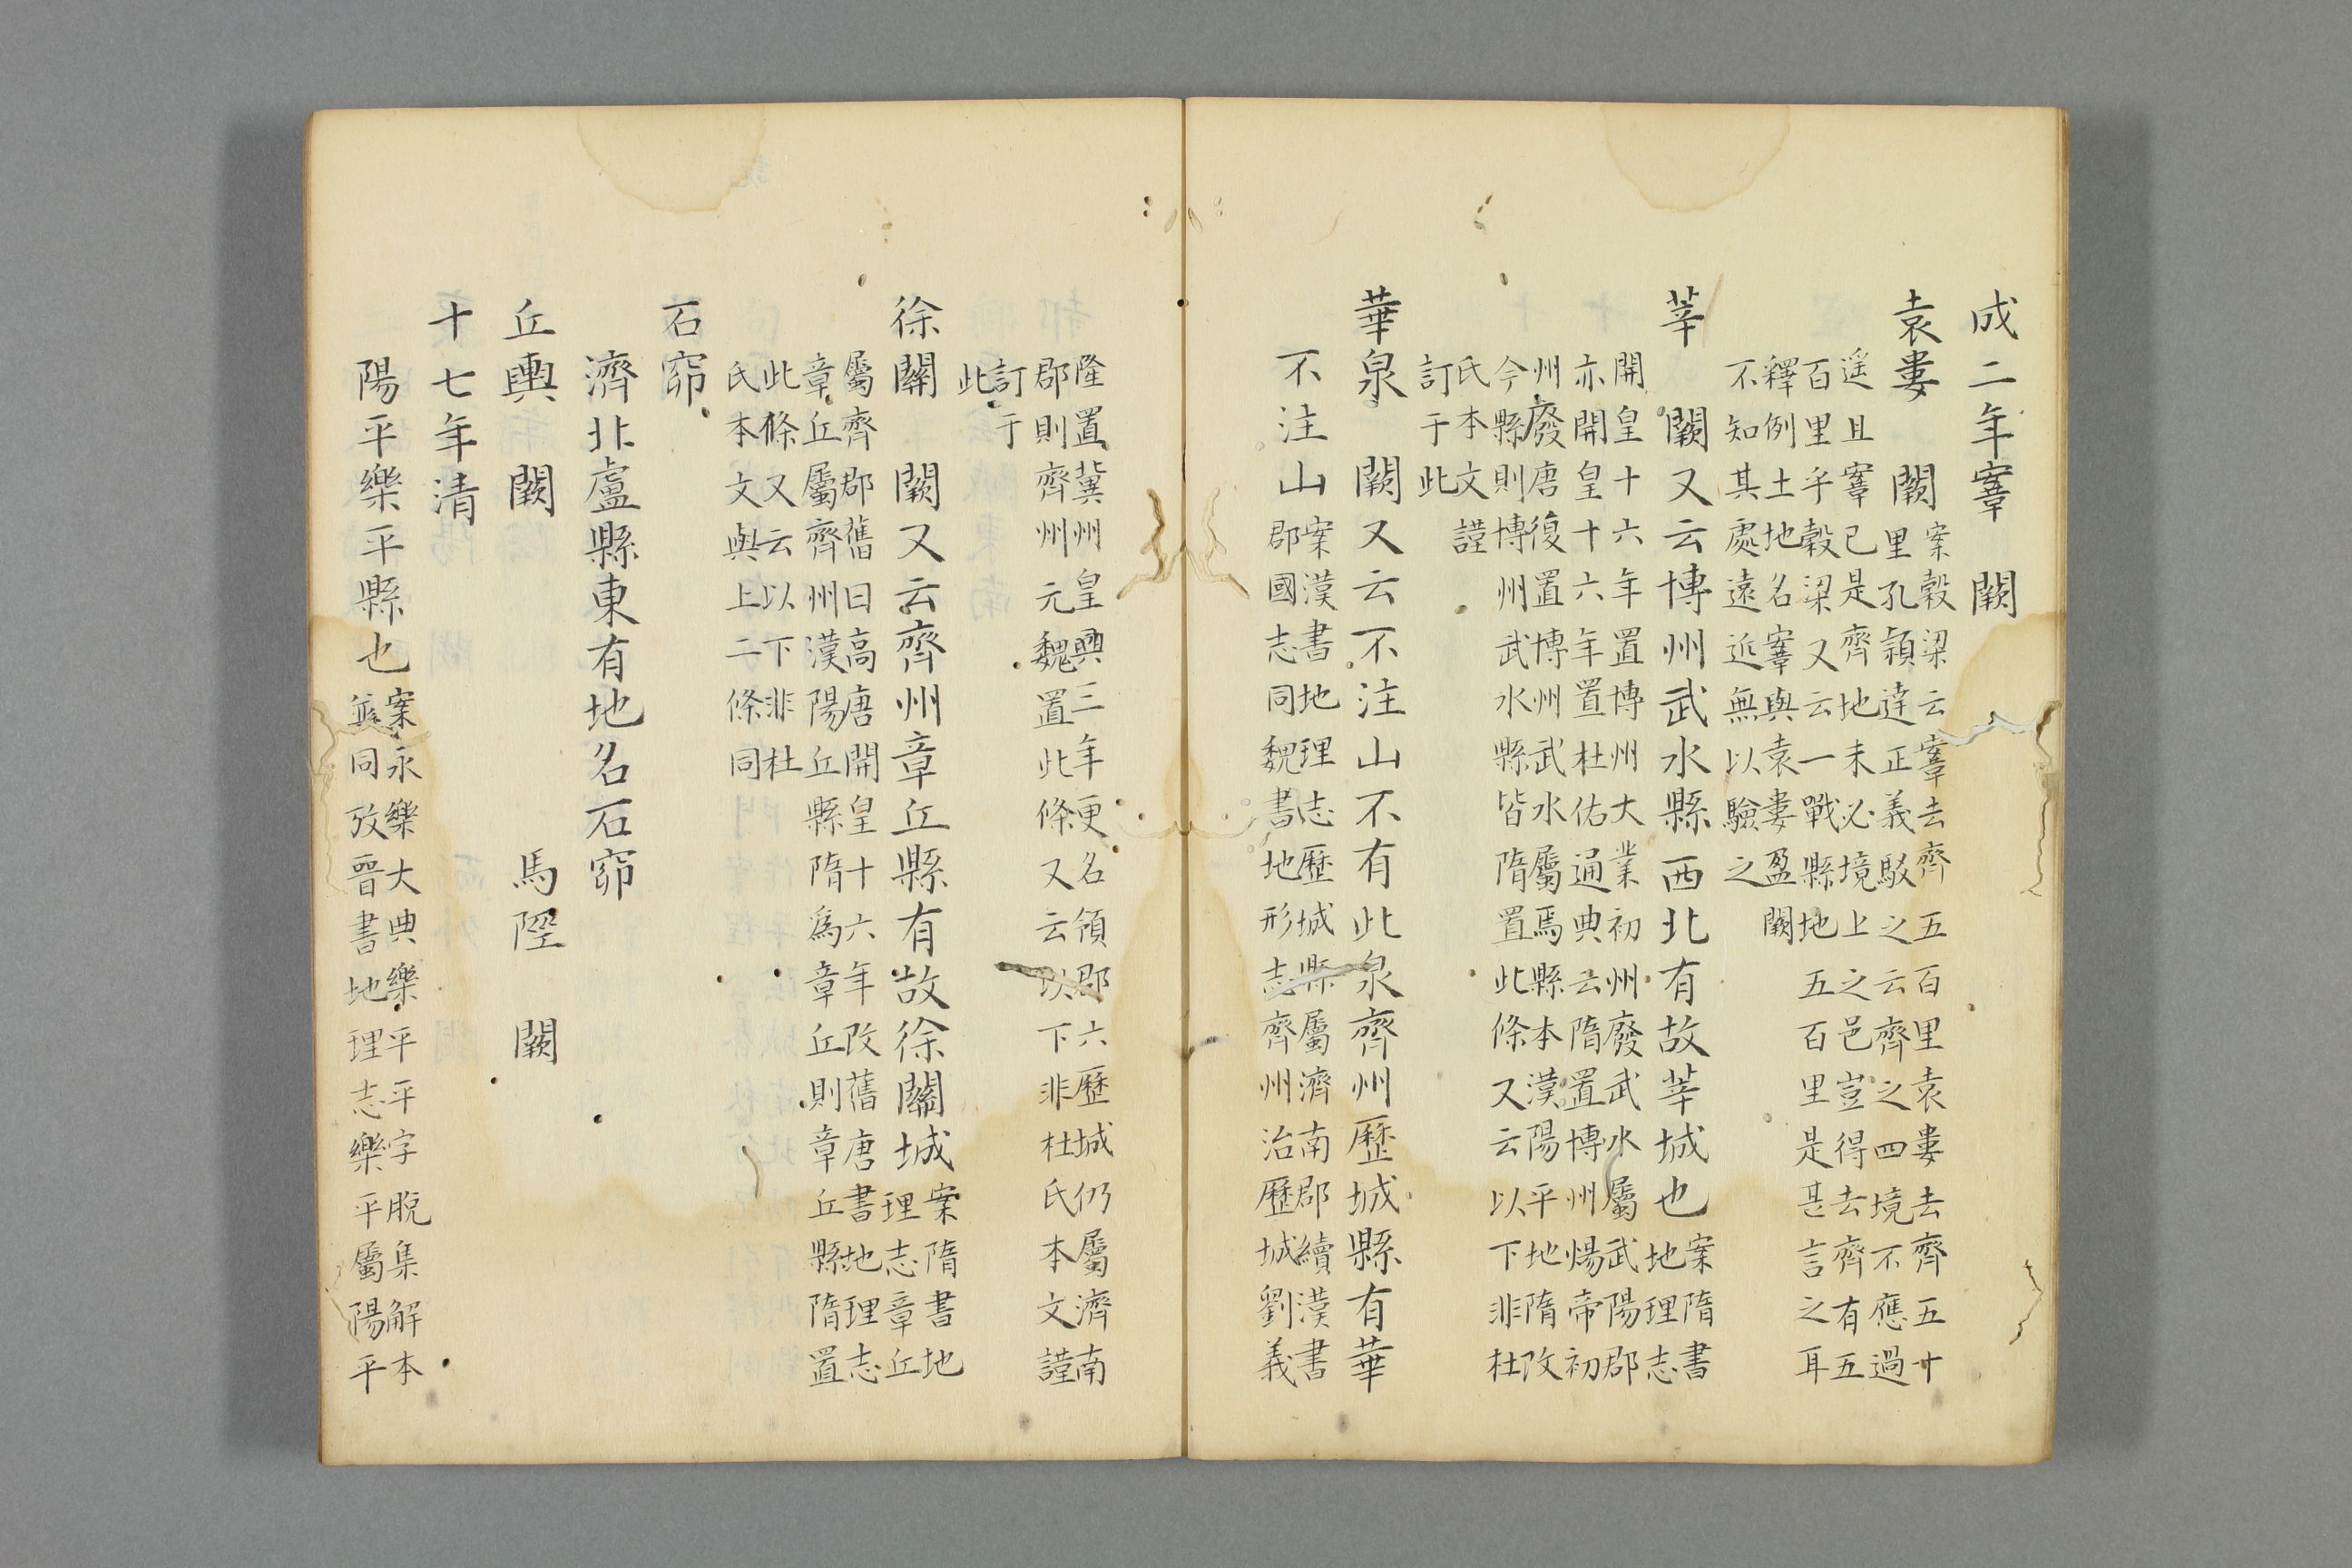 成二年鞌　闕
袁婁　闕　案穀梁云鞌去齊五百里袁婁去齊五十
里孔穎達正義駁之云齊之四境不應過
遥且鞌已是齊地未必境上之邑豈得去齊有五
百里乎穀梁又云一戰縣地五百里是甚言之耳
釋例土地名鞌與袁婁盈闕
不知其處遠近無以驗之
莘　闕又云博州武水縣西北有故莘城也　案隋書
地理志
開皇十六年置博州大業初州廢武水屬武陽郡
亦開皇十六年置杜佑通典云隋置博州煬帝初
州廢唐復置博州武水屬焉縣本漢陽平地隋改
今縣則博州武水縣皆隋置此條又云以下非杜
氏本文謹
訂于此
華泉　闕又云不注山不有此泉齊州歷城縣有華
不注山　案漢書地理志歷城縣屬濟南郡續漢書
郡國志同魏書地形志齊州治歷城劉義
隆置冀州皇興三年更名領郡六歷城仍屬濟南
郡則齊州元魏置此條又云以下非杜氏本文謹
訂于
此
徐關　闕又云齊州章丘縣有故徐關城　案隋書地
理志章丘
屬齊郡舊曰高唐開皇十六年改舊唐書地理志
章丘屬齊州漢陽丘縣隋爲章丘則章丘縣隋置
此條又云以下非杜
氏本文與上二條同
石窌
濟北盧縣東有地名石窌
丘輿　闕　馬陘　闕
十七年清
陽平樂平縣也　案永樂大典樂平平字脫集解本
並同攷晉書地理志樂平屬陽平